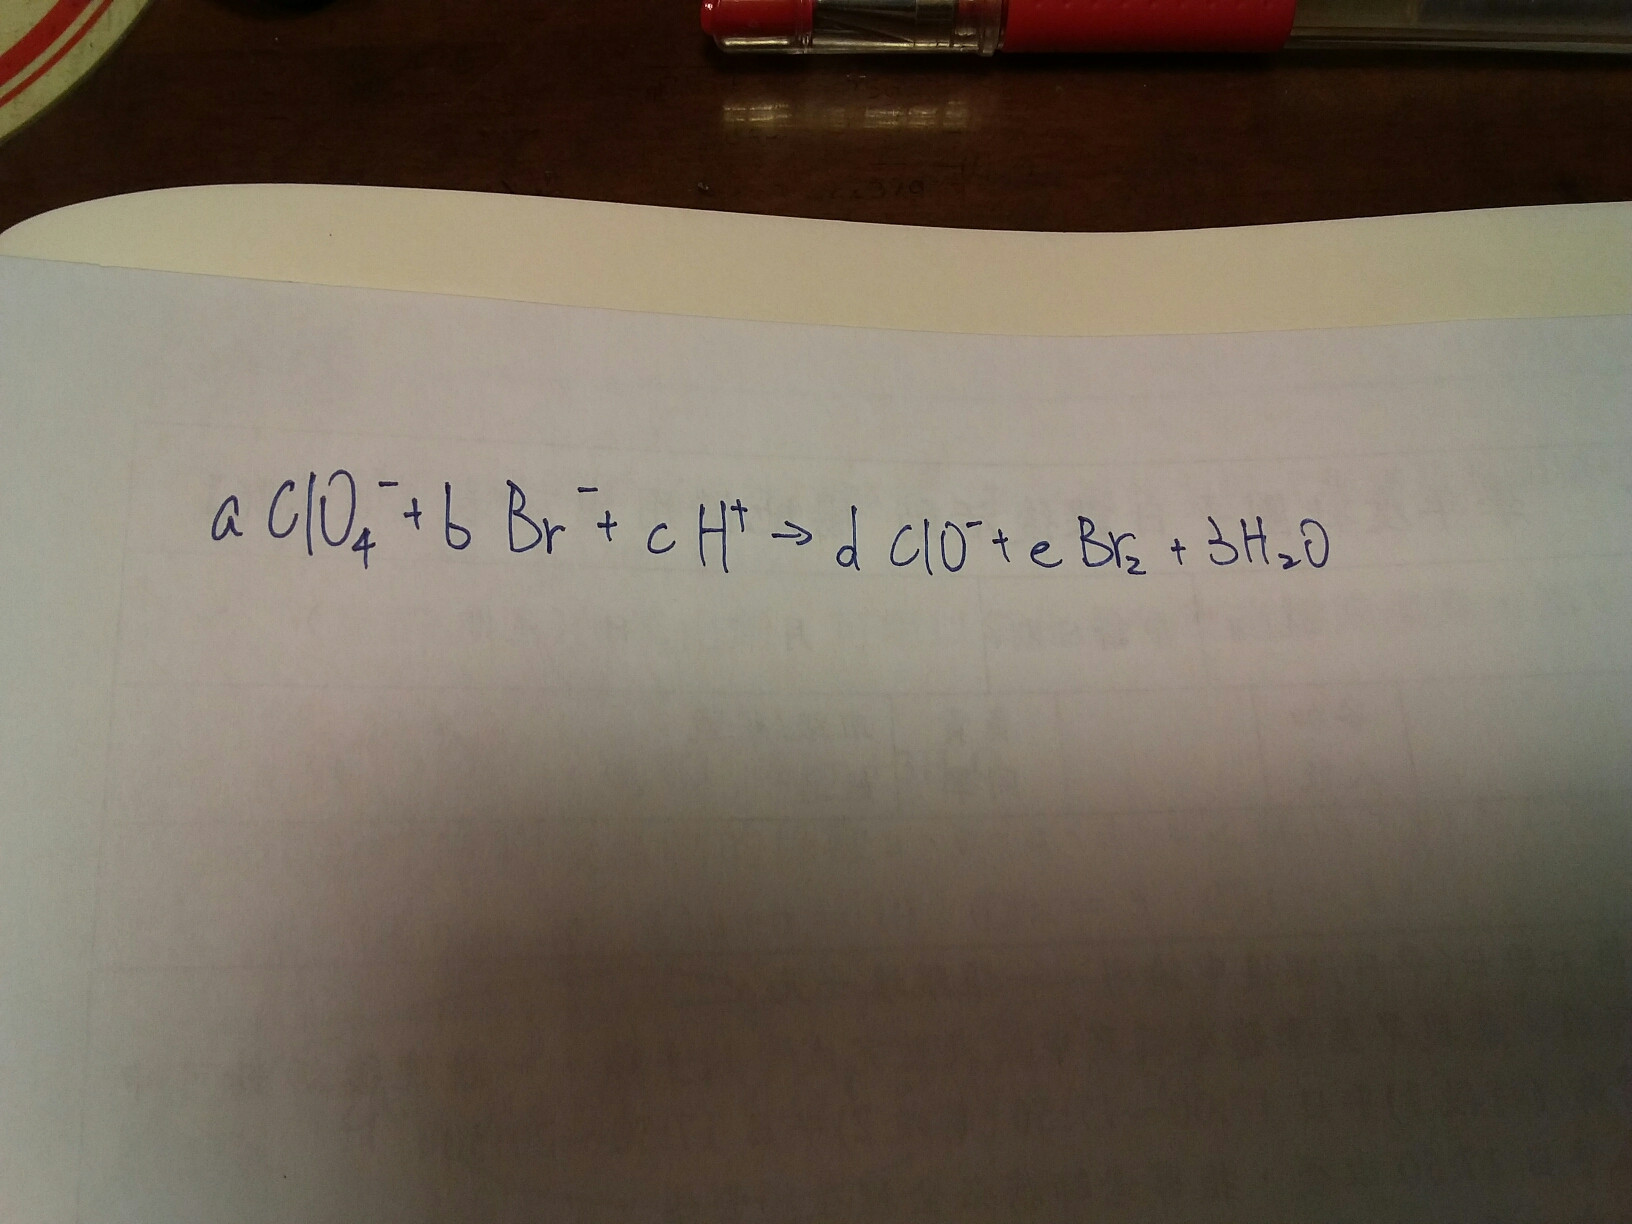 a ClO₄⁻ + b Br⁻ + c H⁺ → d ClO⁻ + e Br₂ + 3H₂O